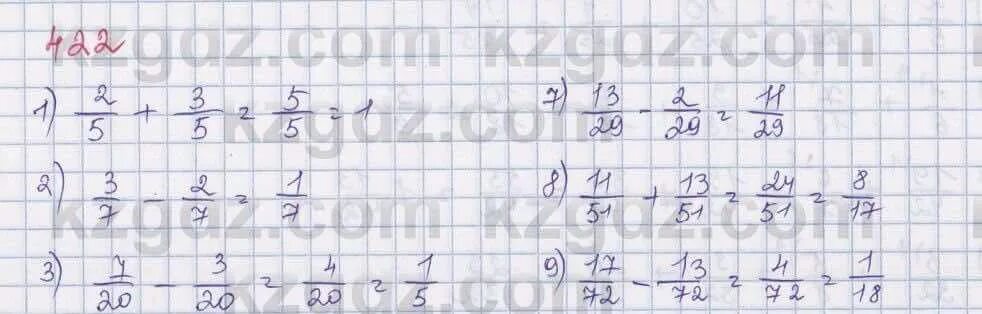 422
1) 2/5 + 3/5 = 5/5 = 1
2) 3/7 - 2/7 = 1/7
3) 7/20 - 3/20 = 4/20 = 1/5
7) 13/29 - 2/29 = 11/29
8) 11/51 + 13/51 = 24/51 = 8/17
9) 17/72 - 13/72 = 4/72 = 1/18
kzgdz.com
kzgdz.com
kzgdz.com
kzgdz.com
kzgdz.com